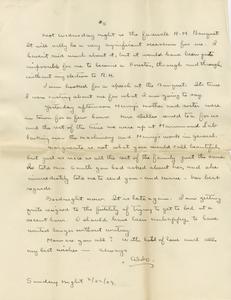 #6
Next Wednesday night is the funerale R.H. Banquet
It will really be a very significant occasion for me. I
haven't said much about it, but it would have been quite
impossible for me to become a Forester, through and through
without my election to R.H.
I am booked for a speech at the Banquet. It's time
I was making about me for what I am going to say.
Yesterday afternoon Merry's mother and sister were
in town for a few hours. We called around to a
and the rest of the time we were up at Merriam and Lab-
looking over the building and Merry's work in general.
Marguerite is not what you would call beautiful,
but just as nice as all the rest of the family just the same.
I told her I wish you had asked about her, and she
immediately told me to send you - and means - her best
regards.
Goodnight now. It is late again. I am getting
quite resigned to the futility of trying to get to bed at a
decent hour. I should have been unhappy to have
waited longer without writing.
How are you all? With lots of love and all
my best wishes - Always
Aldo.
Sunday night 2/